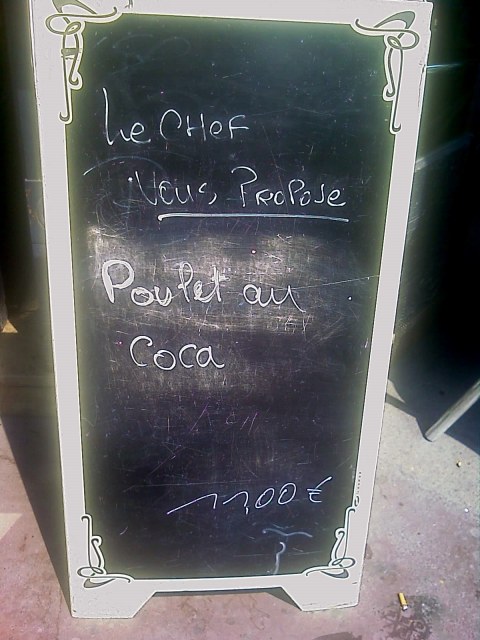 Le CHEF
Vous PROPOSE
Poulet au
COCA
11,00 €